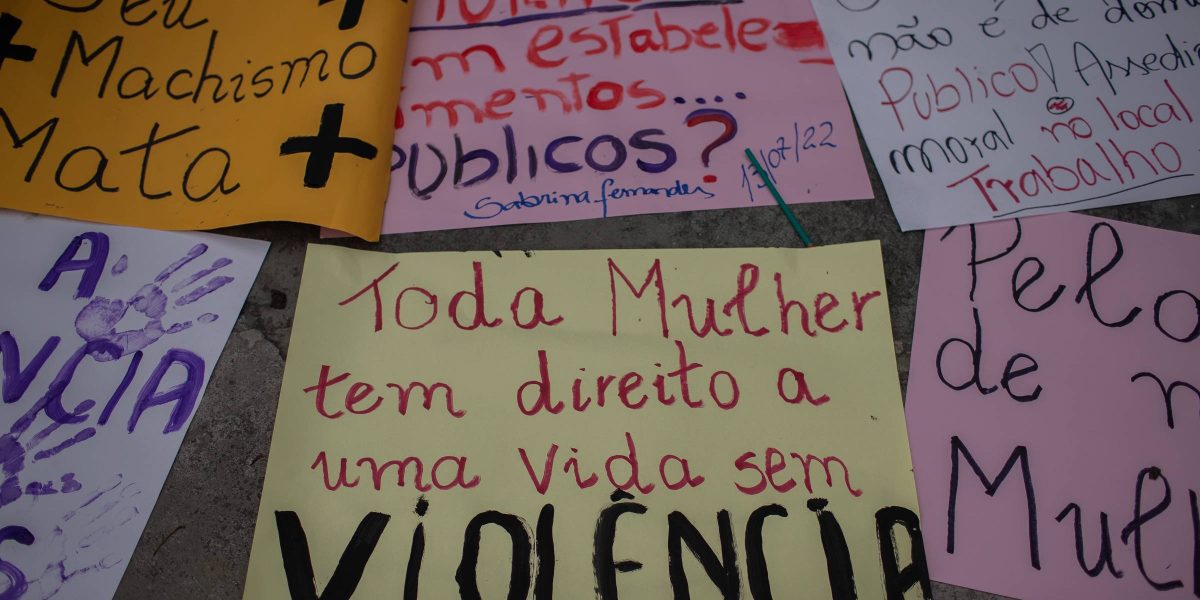 Seu +
+ Machismo
Mata +
em estabele
cimentos....
Públicos?
Sabrina fernandes 13/07/22
não é de dom
Público! Assedi
moral no local
Trabalho
A
VCIA
Toda Mulher
tem direito a
uma vida sem
VIOLÊNCIA
Pelo
de m
Mul